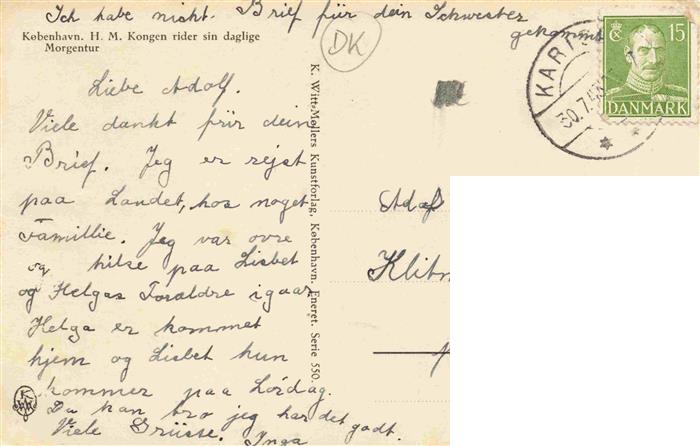 Ich habe nicht. Brief für dein Schwester
gekommt
København. H. M. Kongen rider sin daglige
Morgentur
DK
15
DANMARK
KARI
30.7.4
Liebe Adolf.
Viele dankt für dein
Brief. Jeg er rejst
paa Landet, hos noget
Famillie. Jeg var ovre
og hilse paa Lisbet
og Helgas Foraldre igaar
Helga er kommet
hjem og Lisbet hun
kommer paa Lørdag.
Du kan tro jeg har det godt.
Viele Grüsse. Inga
K. Witt-Møllers Kunstforlag, København. Eneret. Serie 550.
Adolf
Klitm